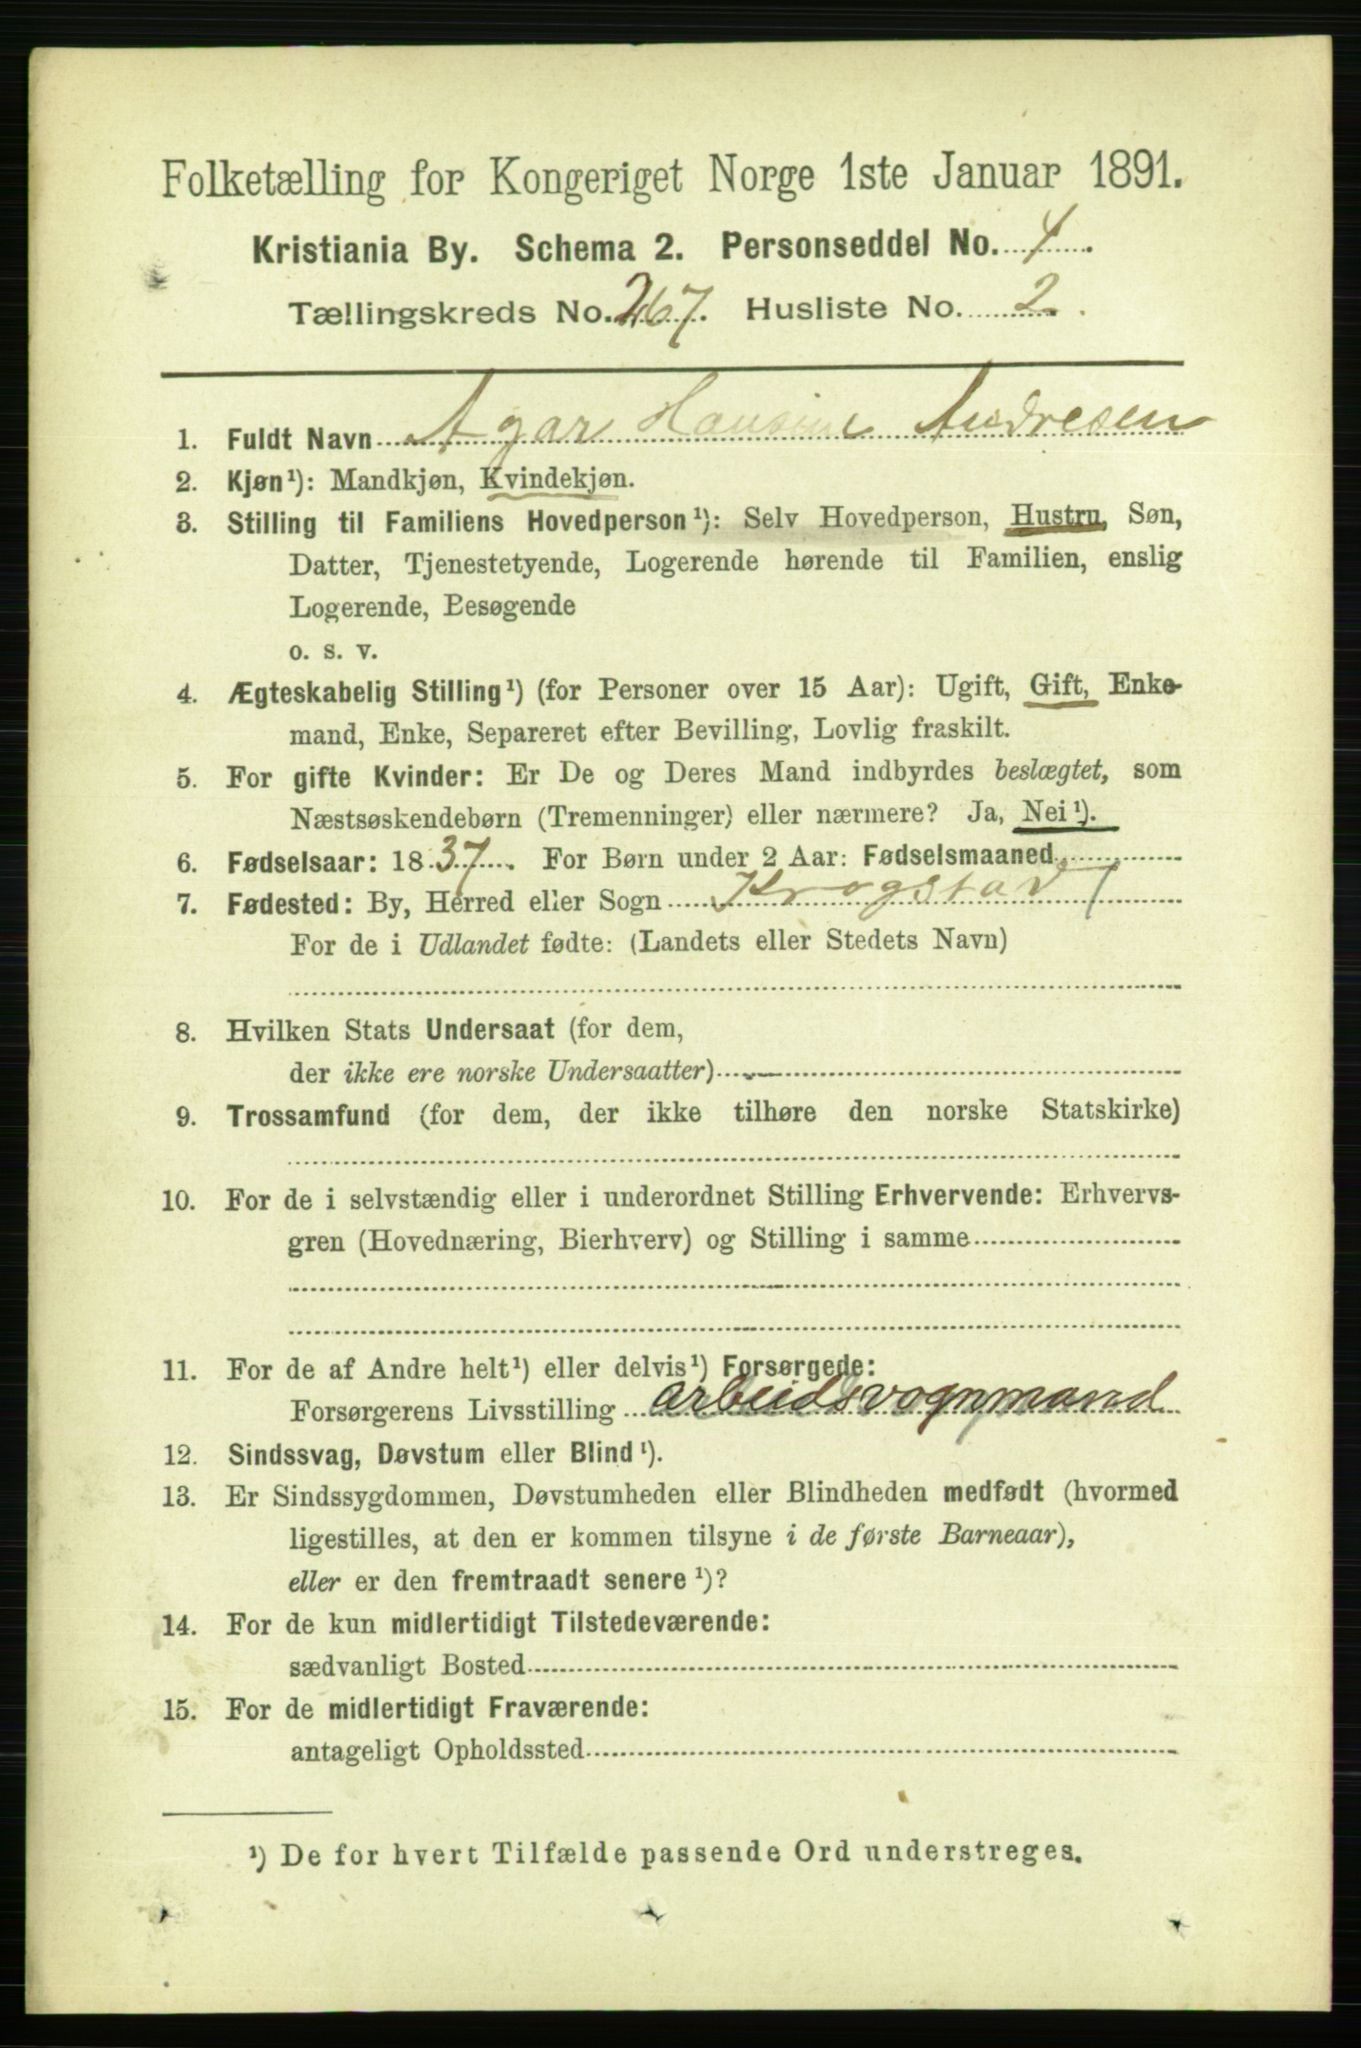 Folketælling for Kongeriget Norge 1ste Januar 1891.
Kristiania By. Schema 2. Personseddel No. 4.
Tællingskreds No. 267. Husliste No. 2.
1. Fuldt Navn Agar Hansine Andresen
2. Kjøn¹): Mandkjøn, Kvindekjøn.
3. Stilling til Familiens Hovedperson¹): Selv Hovedperson, Hustru, Søn,
Datter, Tjenestetyende, Logerende hørende til Familien, enslig
Logerende, Besøgende
o. s. v.
4. Ægteskabelig Stilling¹) (for Personer over 15 Aar): Ugift, Gift, Enke-
mand, Enke, Separeret efter Bevilling, Lovlig fraskilt.
5. For gifte Kvinder: Er De og Deres Mand indbyrdes beslægtet, som
Næstsøskendebørn (Tremenninger) eller nærmere? Ja, Nei¹).
6. Fødselsaar: 1837. For Børn under 2 Aar: Fødselsmaaned
7. Fødested: By, Herred eller Sogn Krogstad
For de i Udlandet fødte: (Landets eller Stedets Navn)
8. Hvilken Stats Undersaat (for dem,
der ikke ere norske Undersaatter)
9. Trossamfund (for dem, der ikke tilhøre den norske Statskirke)
10. For de i selvstændig eller i underordnet Stilling Erhvervende: Erhvervs-
gren (Hovednæring, Bierhverv) og Stilling i samme
11. For de af Andre helt¹) eller delvis¹) Forsørgede:
Forsørgerens Livsstilling arbeidsvognmand
12. Sindssvag, Døvstum eller Blind¹).
13. Er Sindssygdommen, Døvstumheden eller Blindheden medfødt (hvormed
ligestilles, at den er kommen tilsyne i de første Barneaar),
eller er den fremtraadt senere¹)?
14. For de kun midlertidigt Tilstedeværende:
sædvanligt Bosted
15. For de midlertidigt Fraværende:
antageligt Opholdssted
¹) De for hvert Tilfælde passende Ord understreges.